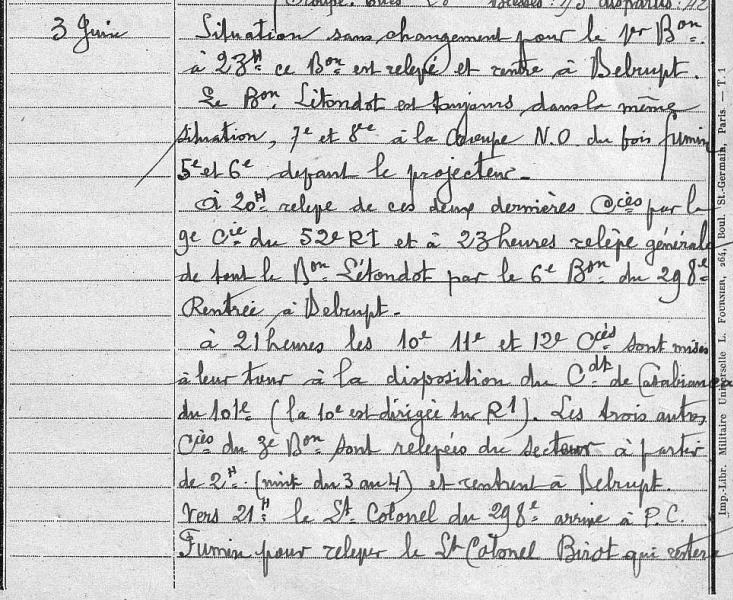 3 Juin
Situation sans changement pour le 1er Bon.
à 23H ce Bon est relevé et rentre à Belrupt.
Le Bon Létondot est toujours dans la même
situation, 7e et 8ee à la Coupe N.O. du bois fumin
5e et 6e devant le projecteur.
à 20H relève de ces deux dernières Cies par la
9e Cie du 52e RI et à 23 heures relève générale
de tout le Bon Létondot par le 6e Bon du 298e
Rentrée à Belrupt.
à 21 heures les 10e 11e et 12e Cies sont mises
à leur tour à la disposition du Cdt de
du 101e (la 10e est dirigée sur R1). Les trois autres
Cies du 3e Bon sont relevées du secteur à partir
de 2H (nuit du 3 au 4) et rentrent à Belrupt.
Vers 21H le Lt Colonel du 298e arrive à P.C.
Fumin pour relever le Lt Colonel Birot qui restera
Imp.-Libr. Militaire Universelle L. FOURNIER, 264, Boul. St-Germain, Paris. — T. 1